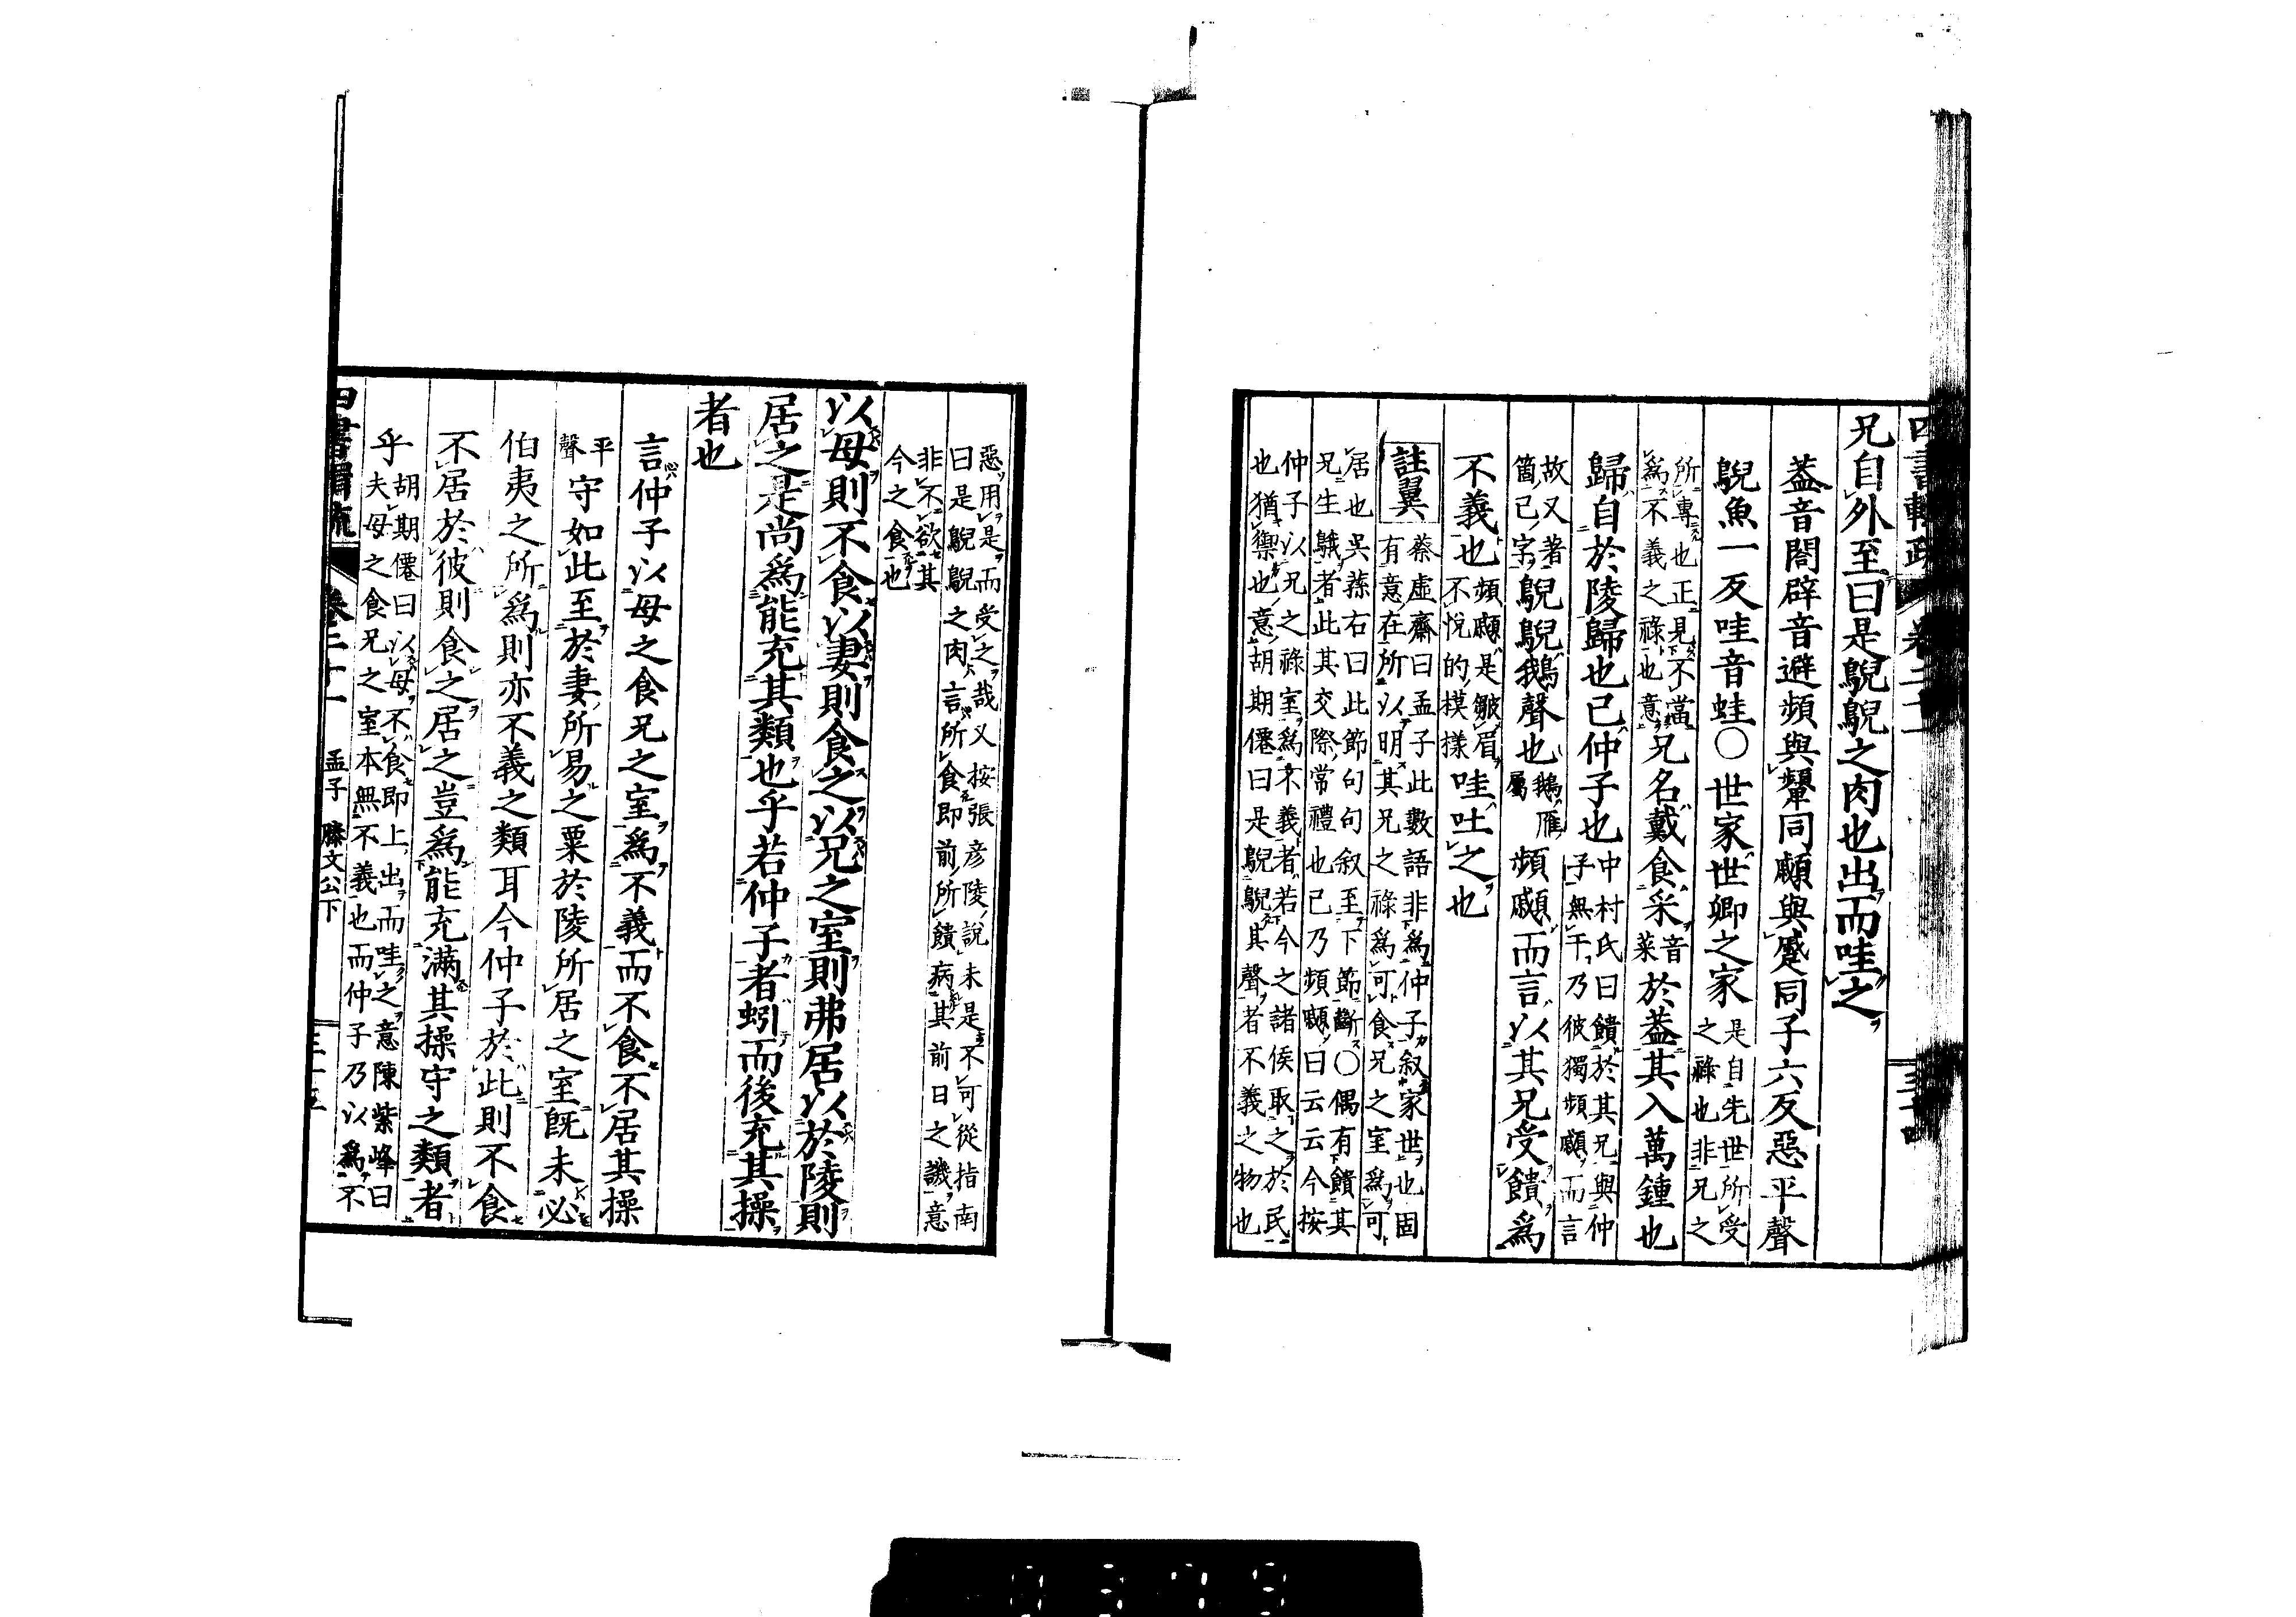 四書輯疏 卷二十一 三十四
兄自外至曰是鶃鶃之肉也出而哇之
蓋音閤辟音避頻與顰同顣與蹙同子六反惡平聲
鶃魚一反哇音蛙○世家世卿之家
是自先世所受
之祿也非兄之
所專也正見不當
爲不義之祿也意
兄名戴食采
音
菜
於蓋其入萬鍾也
歸自於陵歸也己仲子也
中村氏曰饋於其兄與仲
子無干乃彼獨頻顣而言
故又著
箇己字
鶃鶃鵝聲也
鵝鴈
屬
頻顣而言以其兄受饋爲
不義也
頻顣是皺眉
不悅的模樣
哇吐之也
註翼
蔡虛齋曰孟子此數語非爲仲子叙家世也固
有意在所以明其兄之祿爲可食兄之室爲可
居也吳蓀右曰此節句句叙至下節斷○偶有饋其
兄生鵝者此其交際常禮也己乃頻顣曰云云今按
仲子以兄之祿室爲不義者若今之諸侯取之於民
也猶禦也意胡期僊曰是鶃鶃其聲者不義之物也
惡用是而受之哉又按張彥陵說未是不可從指南
曰是鶃鶃之肉言所食即前所饋病其前日之譏意
非不欲其
今之食也
以母則不食以妻則食之以兄之室則弗居以於陵則
居之是尚爲能充其類也乎若仲子者蚓而後充其操
者也
言仲子以母之食兄之室爲不義而不食不居其操
平
聲
守如此至於妻所易之粟於陵所居之室既未必
伯夷之所爲則亦不義之類耳今仲子於此則不食
不居於彼則食之居之豈爲能充滿其操守之類者
乎
胡期僊曰以母不食即上出而哇之意陳紫峰曰
夫母之食兄之室本無不義也而仲子乃以爲不
四書輯疏 卷二十一 孟子 滕文公下 三十五